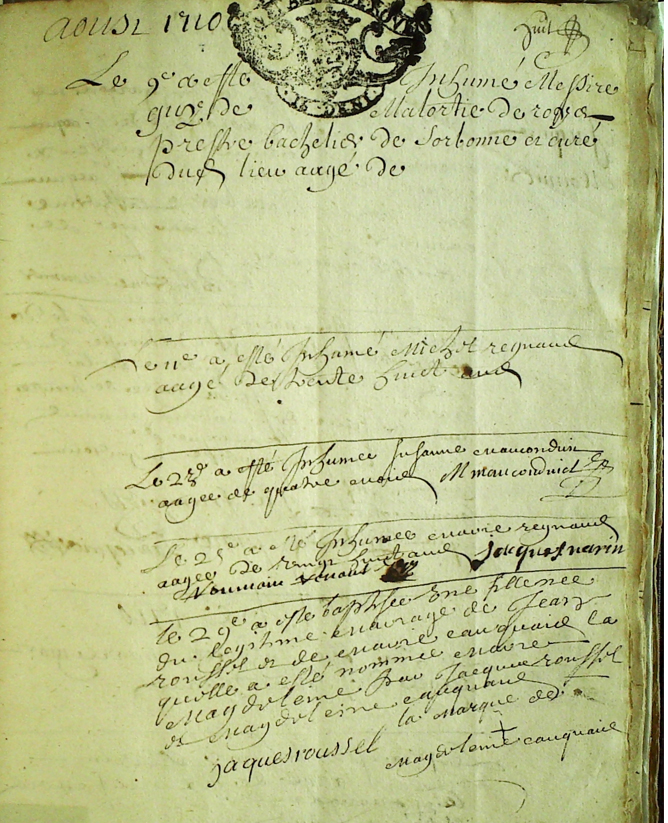 aoust 1710
huit
Le 9e a esté Inhumé Messire
guy de Malortie de
prestre bachelier de Sorbonne et curé
dud lieu aagé de
Le 11e a esté Inhumé Michel regnaud
aagé de trente huict ans
Le 23e a esté Inhumee Susanne mauconduit
aagee de quatre M mauconduict
Le 25e a esté Inhumee marie regnaud
aagee de vingt huict ans jacques marin
Le 29e a esté baptisée Une fille nee
du legitime mariage de Jean
roussel et de marie cauquard la
quelle a esté nommée marie
Magdeleine par Jacque roussel
et Magdeleine cauquard
jaques roussel la marque de
Magdeleine cauquard